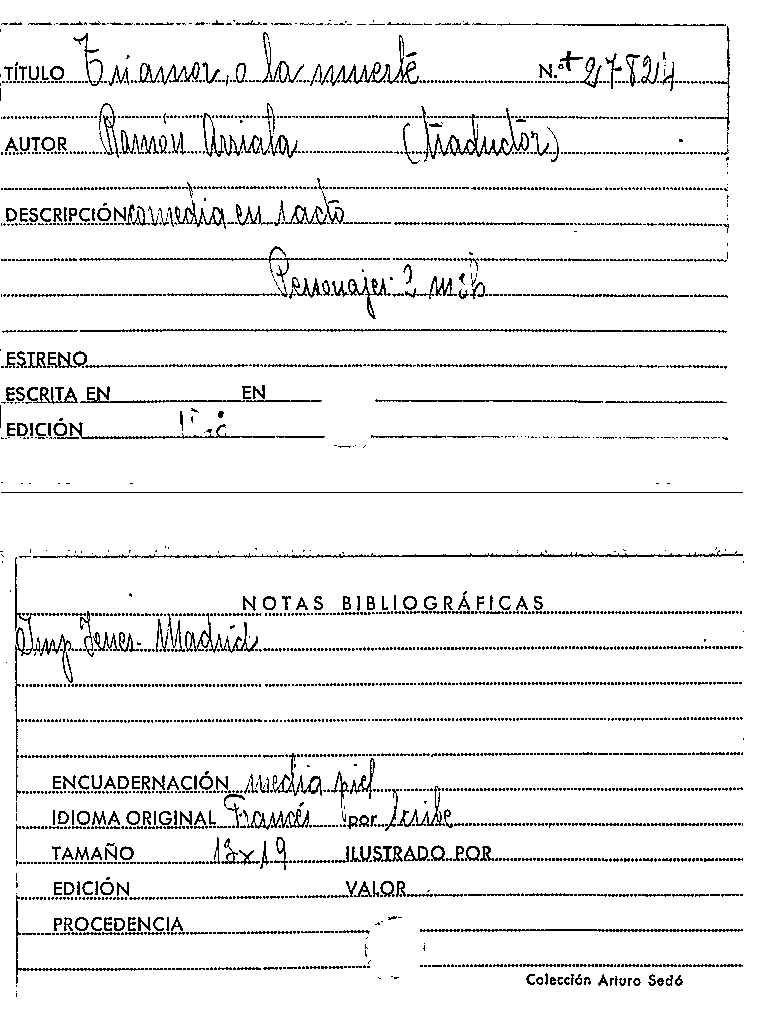 TÍTULO Tu amor, o la muerte N.º 27824
AUTOR Ramón Arriala (traductor)
DESCRIPCIÓN comedia en 1 acto
Personajes: 2 m 3h
ESTRENO
ESCRITA EN EN
EDICIÓN
NOTAS BIBLIOGRÁFICAS
Imp Yenes. Madrid
ENCUADERNACIÓN media piel
IDIOMA ORIGINAL Francés por Scribe
TAMAÑO 13x19 ILUSTRADO POR
EDICIÓN VALOR
PROCEDENCIA
Colección Arturo Sedó